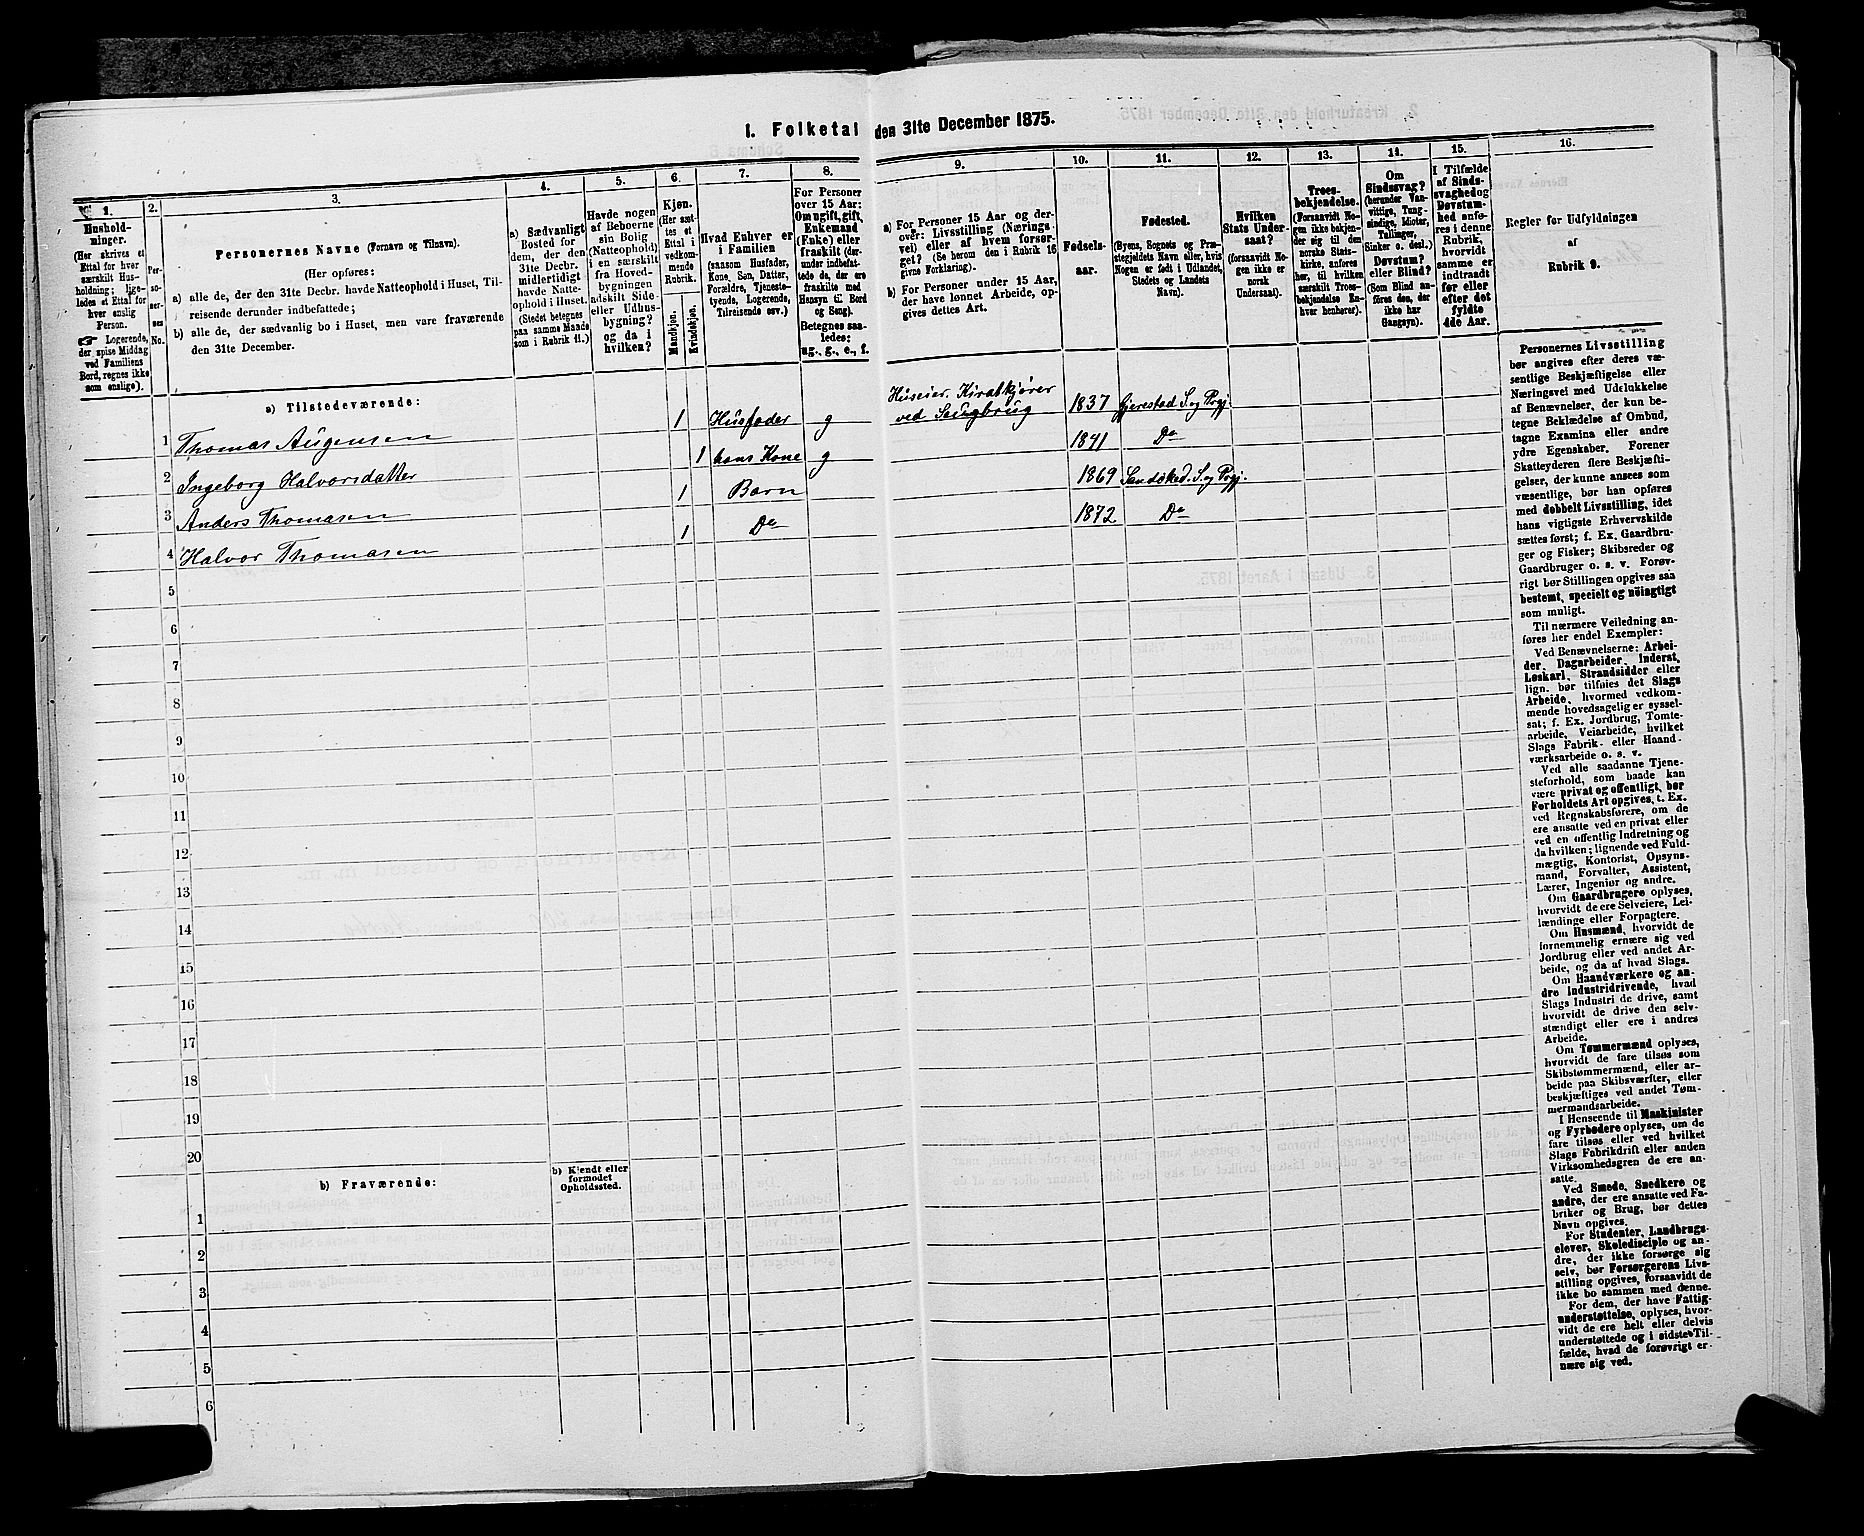 1. Folketal den 31te December 1875.
1.
Hushold-
ninger.
(Her skrives et
Ettal for hver
særskilt Hus-
holdning; lige-
ledes et Ettal for
hver enslig
Person.
☞ Logerende,
der spise Middag
ved Familiens
Bord, regnes ikke
som enslige).
2.
Per-
so-
ner-
nes
No.
3.
Personernes Navne (Fornavn og Tilnavn).
(Her opføres:
a) alle de, der den 31te Decbr. havde Natteophold i Huset, Til-
reisende derunder indbefattede;
b) alle de, der sædvanlig bo i Huset, men vare fraværende
den 31te December.
4.
a) Sædvanligt
Bosted for
dem, der den
31te Decbr.
midlertidigt
havde Natte-
ophold i Huset.
(Stedet betegnes
paa samme Maade
som i Rubrik 11.)
5.
Havde nogen
af Beboerne
sin Bolig
(Natteophold)
i en særskilt
fra Hoved-
bygningen
adskilt Side-
eller Udhus-
bygning?
og da i
hvilken?
6.
Kjøn.
(Her sæt-
tes et
Ettal i
vedkom-
mende
Rubrik.
Mandkjøn.
Kvindekjøn.
7.
Hvad Enhver er
i Familien
(saasom Husfader,
Kone, Søn, Datter,
Forældre, Tjeneste-
tyende, Logerende,
Tilreisende osv.)
8.
For Personer
over 15 Aar:
Om ugift, gift,
Enkemand
(Enke) eller
fraskilt (der-
under indbefat-
tede de, der ere
fraskilte med
Hensyn til Bord
og Seng).
Betegnes saa-
ledes:
ug., g., e., f.
9.
a) For Personer 15 Aar og der-
over: Livsstilling (Nærings-
vei) eller af hvem forsør-
get? (Se herom den i Rubrik 16
givne Forklaring).
b) For Personer under 15 Aar,
der have lønnet Arbeide, op-
gives dettes Art.
10.
Fødsels-
aar.
11.
Fødested.
(Byens, Sognets og Præ-
stegjeldets Navn eller, hvis
Nogen er født i Udlandet,
Stedets og Landets
Navn).
12.
Hvilken
Stats Under-
saat?
(forsaavidt No-
gen ikke er
norsk
Undersaat).
13.
Troes-
bekjendelse.
(Forsaavidt No-
gen ikke bekjen-
der sig til den
norske Stats-
kirke, anføres
her, til hvilken
særskilt Troes-
bekjendelse En-
hver henhører).
14.
Om
Sindssvag?
(herunder Van-
vittige, Tung-
sindige, Idioter,
Tullinger,
Sinker o. desl.)
Døvstum?
eller Blind?
(Som Blind an-
føres den, der
ikke har
Gangsyn).
15.
I Tilfælde
af Sinds-
svaghed og
Døvstum-
hed anfø-
res i denne
Rubrik,
hvorvidt
samme er
indtraadt
før eller
efter det
fyldte
4de Aar.
16.
Regler for Udfyldningen
af
Rubrik 9.
a) Tilstedeværende:
1 Thomas Augensen 1 Husfader g Huseier. Kjøreskjører ved Saugbrug 1837 Gjerestad S. og Prgj.
2 Ingeborg Halvorsdatter 1 hans Kone g 1841 Do
3 Anders Thomasen 1 Barn 1869 Søndeled. S. og Prgj.
4 Halvor Thomasen 1 Do 1872 Do
5
6
7
8
9
10
11
12
13
14
15
16
17
18
19
20
b) Fraværende:
b) Kjendt eller
formodet
Opholdssted.
1
2
3
4
5
6
Personernes Livsstilling
bør angives efter deres væ-
sentlige Beskjæftigelse eller
Næringsvei med Udelukkelse
af Benævnelser, der kun be-
tegne Beklædelse af Ombud,
tagne Examina eller andre
ydre Egenskaber. Forener
Skatteyderen flere Beskjæfti-
gelser, der kunne ansees som
væsentlige, bør han opføres
med dobbelt Livsstilling, idet
hans vigtigste Erhvervskilde
sættes først; f. Ex. Gaardbru-
ger og Fisker; Skibsreder og
Gaardbruger o. s. v. Forøv-
rigt bør Stillingen opgives saa
bestemt, specielt og nøiagtigt
som muligt.
Til nærmere Veiledning an-
føres her endel Exempler:
Ved Benævnelserne: Arbei-
der, Dagarbeider, Inderst,
Løskarl, Strandsidder eller
lign. bør tilføies det Slags
Arbeide, hvormed vedkom-
mende hovedsagelig er syssel-
sat; f. Ex. Jordbrug, Tomte-
arbeide, Veiarbeide, hvilket
Slags Fabrik- eller Haand-
værksarbeide o. s. v.
Ved alle saadanne Tjene-
steforhold, som baade kan
være privat og offentligt, bør
Forholdets Art opgives, t. Ex.
ved Regnskabsførere, om de
ere ansatte ved en privat eller
ved en offentlig Indretning og
da hvilken; lignende ved Fuld-
mægtig, Kontorist, Opsyns-
mand, Forvalter, Assistent,
Lærer, Ingeniør og andre.
Om Gaardbrugere oplyses,
hvorvidt de ere Selveiere, Lei-
lændinge eller Forpagtere.
Om Husmænd, hvorvidt de
fornemmelig ernære sig ved
Jordbrug eller ved andet Ar-
beide, og da af hvad Slags.
Om Haandværkere og an-
dre Industridrivende, hvad
Slags Industri de drive, samt
hvorvidt de drive den selv-
stændigt eller ere i andres
Arbeide.
Om Tømmermænd oplyses,
hvorvidt de fare tilsøs som
Skibstømmermænd, eller ar-
beide paa Skibsværfter, eller
beskjæftiges ved andet Tøm-
mermandsarbeide.
I Henseende til Maskinister
og Fyrbødere oplyses, om de
fare tilsøs eller ved hvilket
Slags Fabrikdrift eller anden
Virksomhedsgren de ere an-
satte.
Ved Smede, Snedkere og
andre, der ere ansatte ved Fa-
briker og Brug, bør dettes
Navn opgives.
For Studenter, Landbrugs-
elever, Skoledisciple og an-
dre, der ikke forsørge sig
selv, bør Forsørgerens Livs-
stilling opgives, forsaavidt de
ikke bo sammen med denne.
For dem, der have Fattig-
understøttelse, oplyses, hvor-
vidt de ere helt eller delvis
understøttede og i sidste Til-
fælde, hvad de forøvrigt er-
nære sig ved.